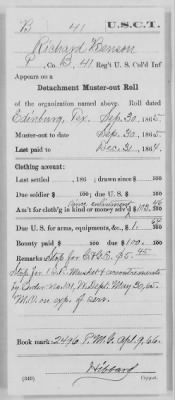 B 41 U.S.C.T.
Richard Benson
P, Co. B, 41 Reg't U. S. Col'd Inf
Appears on a
Detachment Muster-out Roll
of the organization named above. Roll dated
Edinburg, Tex. Sep. 30, 1865.
Muster-out to date Sep. 30, 1865.
Last paid to Dec. 31, 1864.
Clothing account:
Last settled , 186 ; drawn since $ 100
Due soldier $ 100; due U. S. $ 100
since enlistment
Am't for cloth'g in kind or money adv'd $ 103 46/100
Due U. S. for arms, equipments, &c., $ 1. 64/100
Bounty paid $ 100; due $ 100. 100
Remarks: Stop for C & G. E. $5.45
Stop for 1 S. R. Musket & accoutrements
by Order No. 101, W. Dept. May 30, 65.
M.O. on exp. of serv.
Book mark: 2496. P.M.G. Apl. 9, 66.
Hibbard
(340) Copyist.